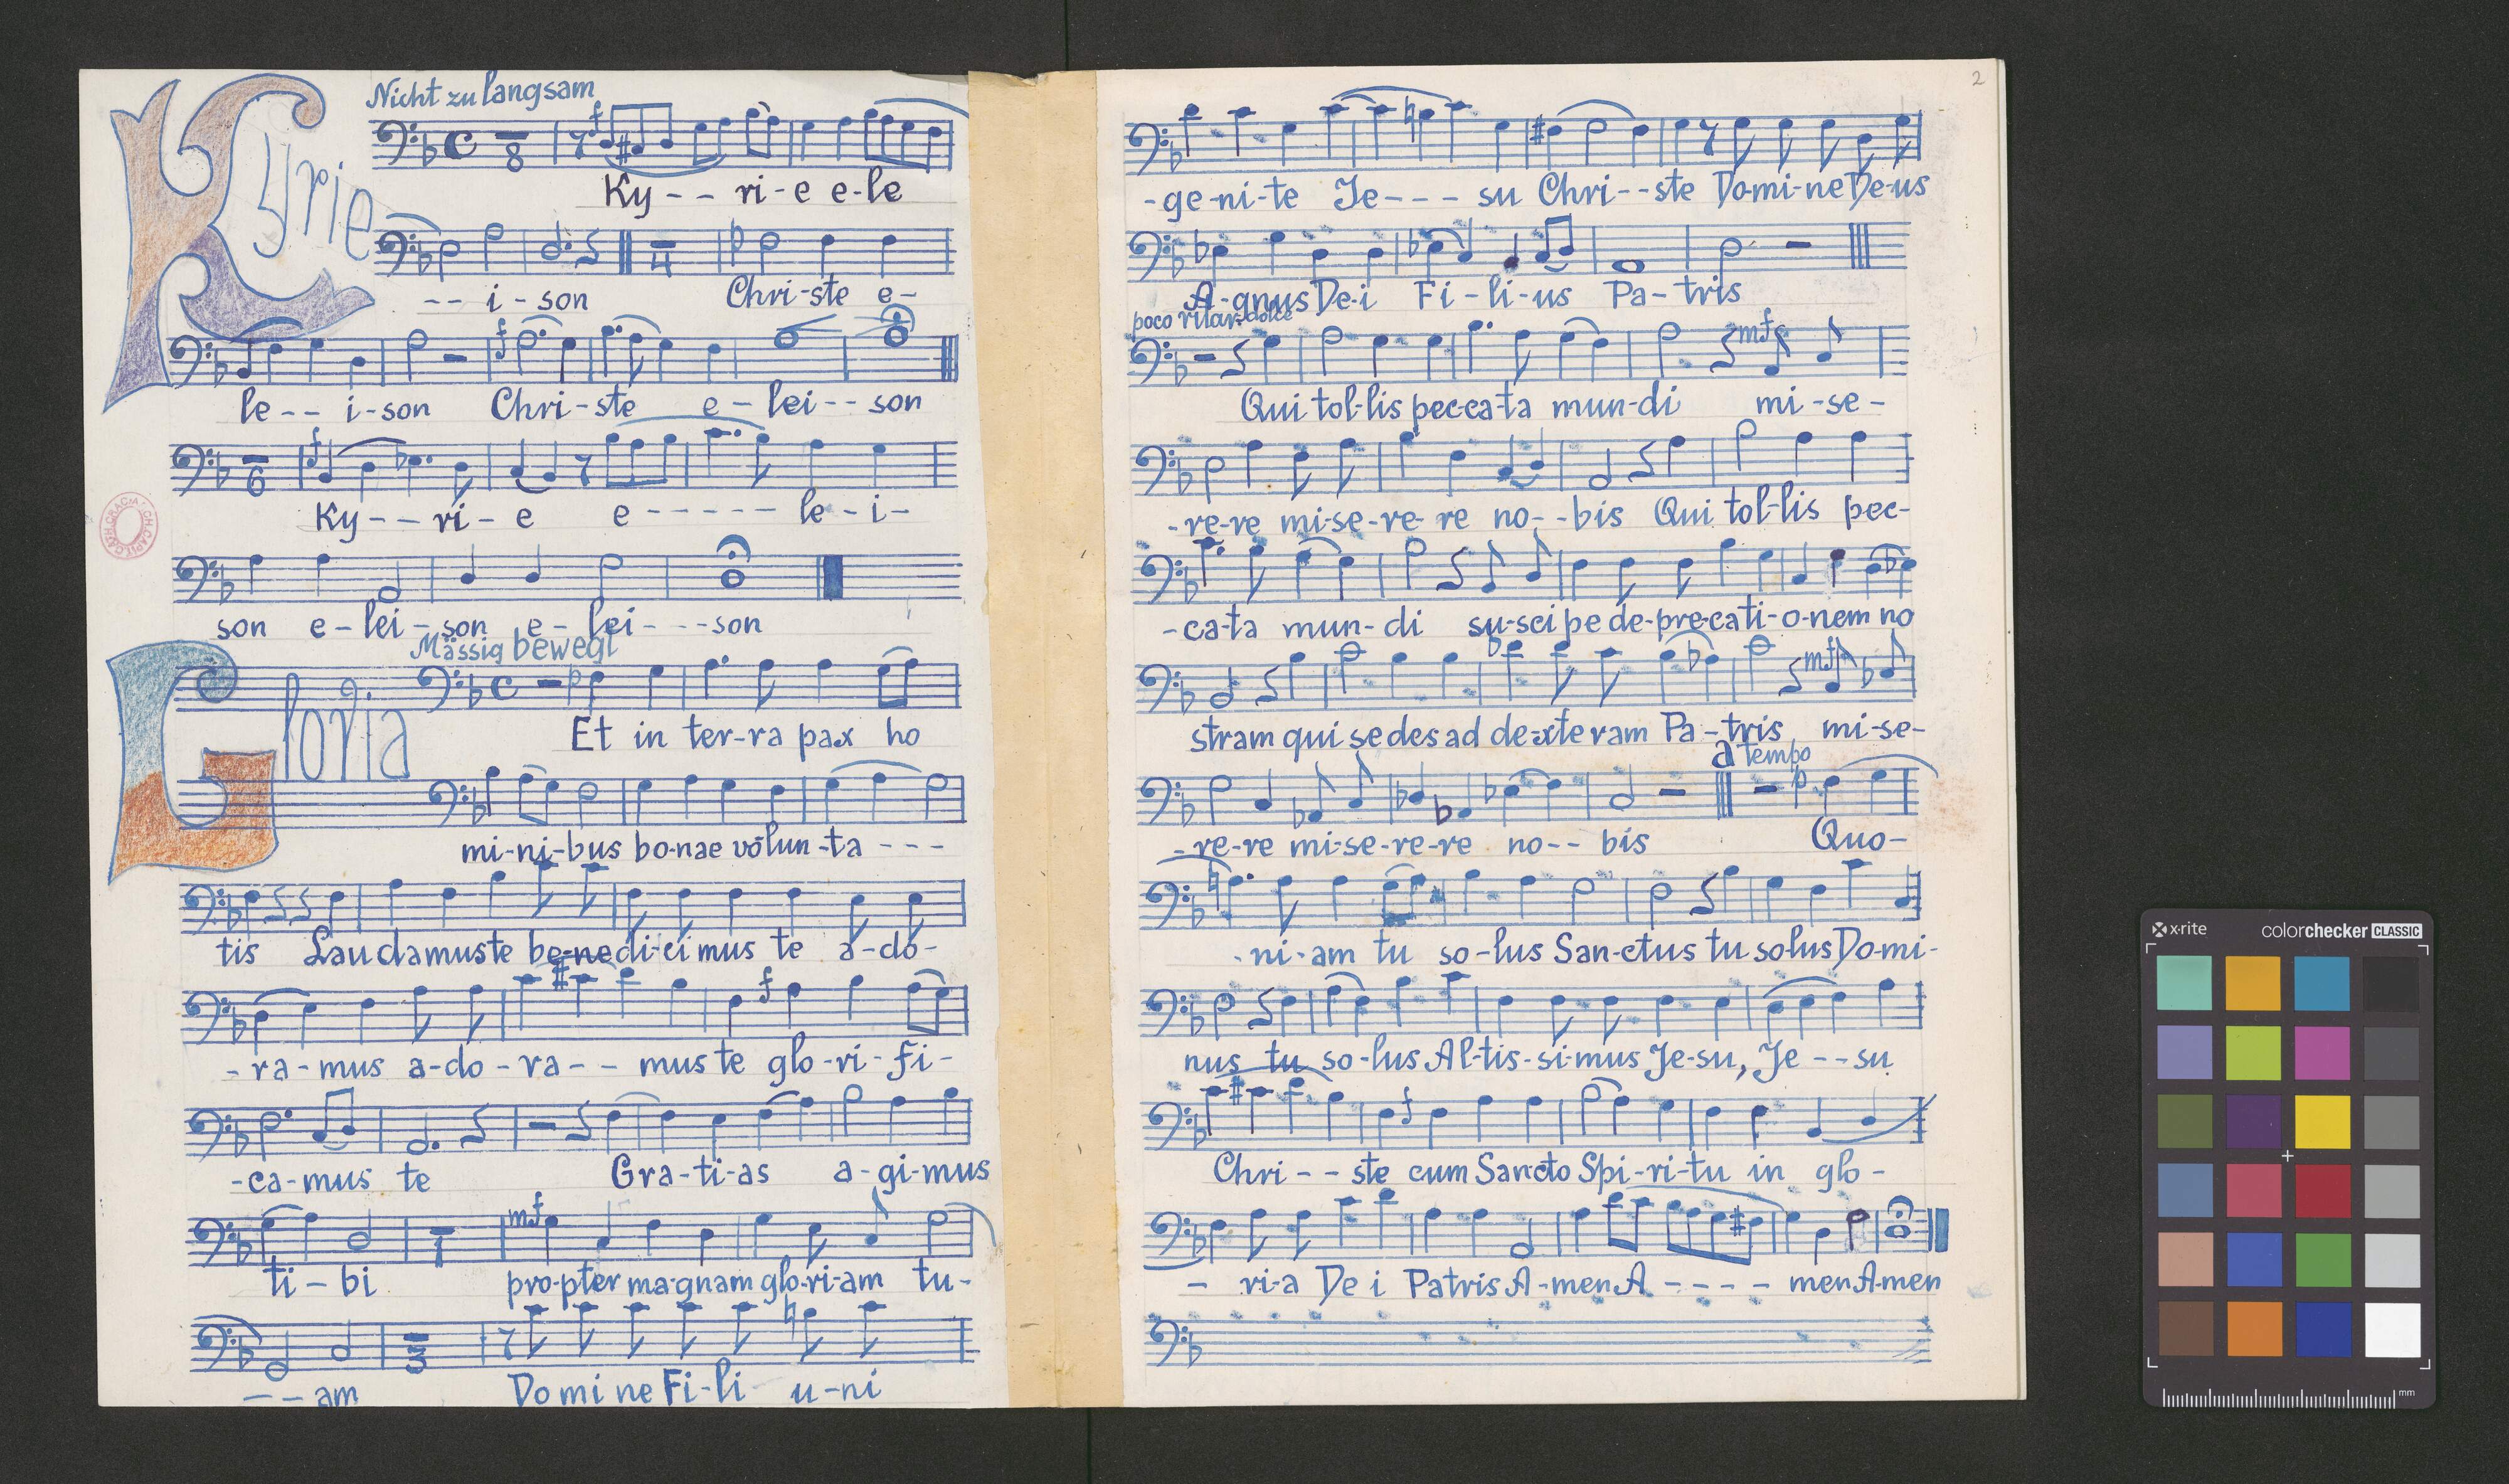 Kyrie
Nicht zu langsam
8
f
Ky - - ri - e e - le
4
- - i - son Chri - ste e -
f
le - - i - son Chri - ste e - lei - - son
6
f
Ky - - ri - e e - - - - - - le - i -
son e - lei - son e - lei - - - son
Mässig bewegt
Gloria
p
Et in ter - ra pax ho
mi - ni - bus bo - nae volun - ta - - -
tis Laudamus te be - nedi - ci mus te a - do -
f
- ra - mus a - do - ra - - mus te glo - ri - fi -
- ca - mus te Gra - ti - as a - gi - mus
1
mf
ti - bi pro - pter ma - gnam glo - ri - am tu -
3
- - am Do mi ne Fi - li u - ni
2
- ge - ni - te Je - - - su Chri - - ste Do - mi - ne De - us
A - gnus De - i Fi - li - us Pa - tris
poco ritar. dolce
mf
Qui tol - lis pec - ca - ta mun - di mi - se -
- re - re mi - se - re - re no - - bis Qui tol - lis pec -
- ca - ta mun - di su - sci pe de - pre - ca - ti - o - nem no
mf
stram qui se des ad de - xte ram Pa - tris mi - se -
a tempo
p
- re - re mi - se - re - re no - - bis Quo -
- ni - am tu so - lus San - ctus tu so - lus Do - mi -
nus tu so - lus Al - tis - si - mus Je - su, Je - - su
f
Chri - - ste cum Sancto Spi - ri - tu in glo -
- ri - a De i Patris A - men A - - - - men A - men
x-rite colorchecker CLASSIC
mm